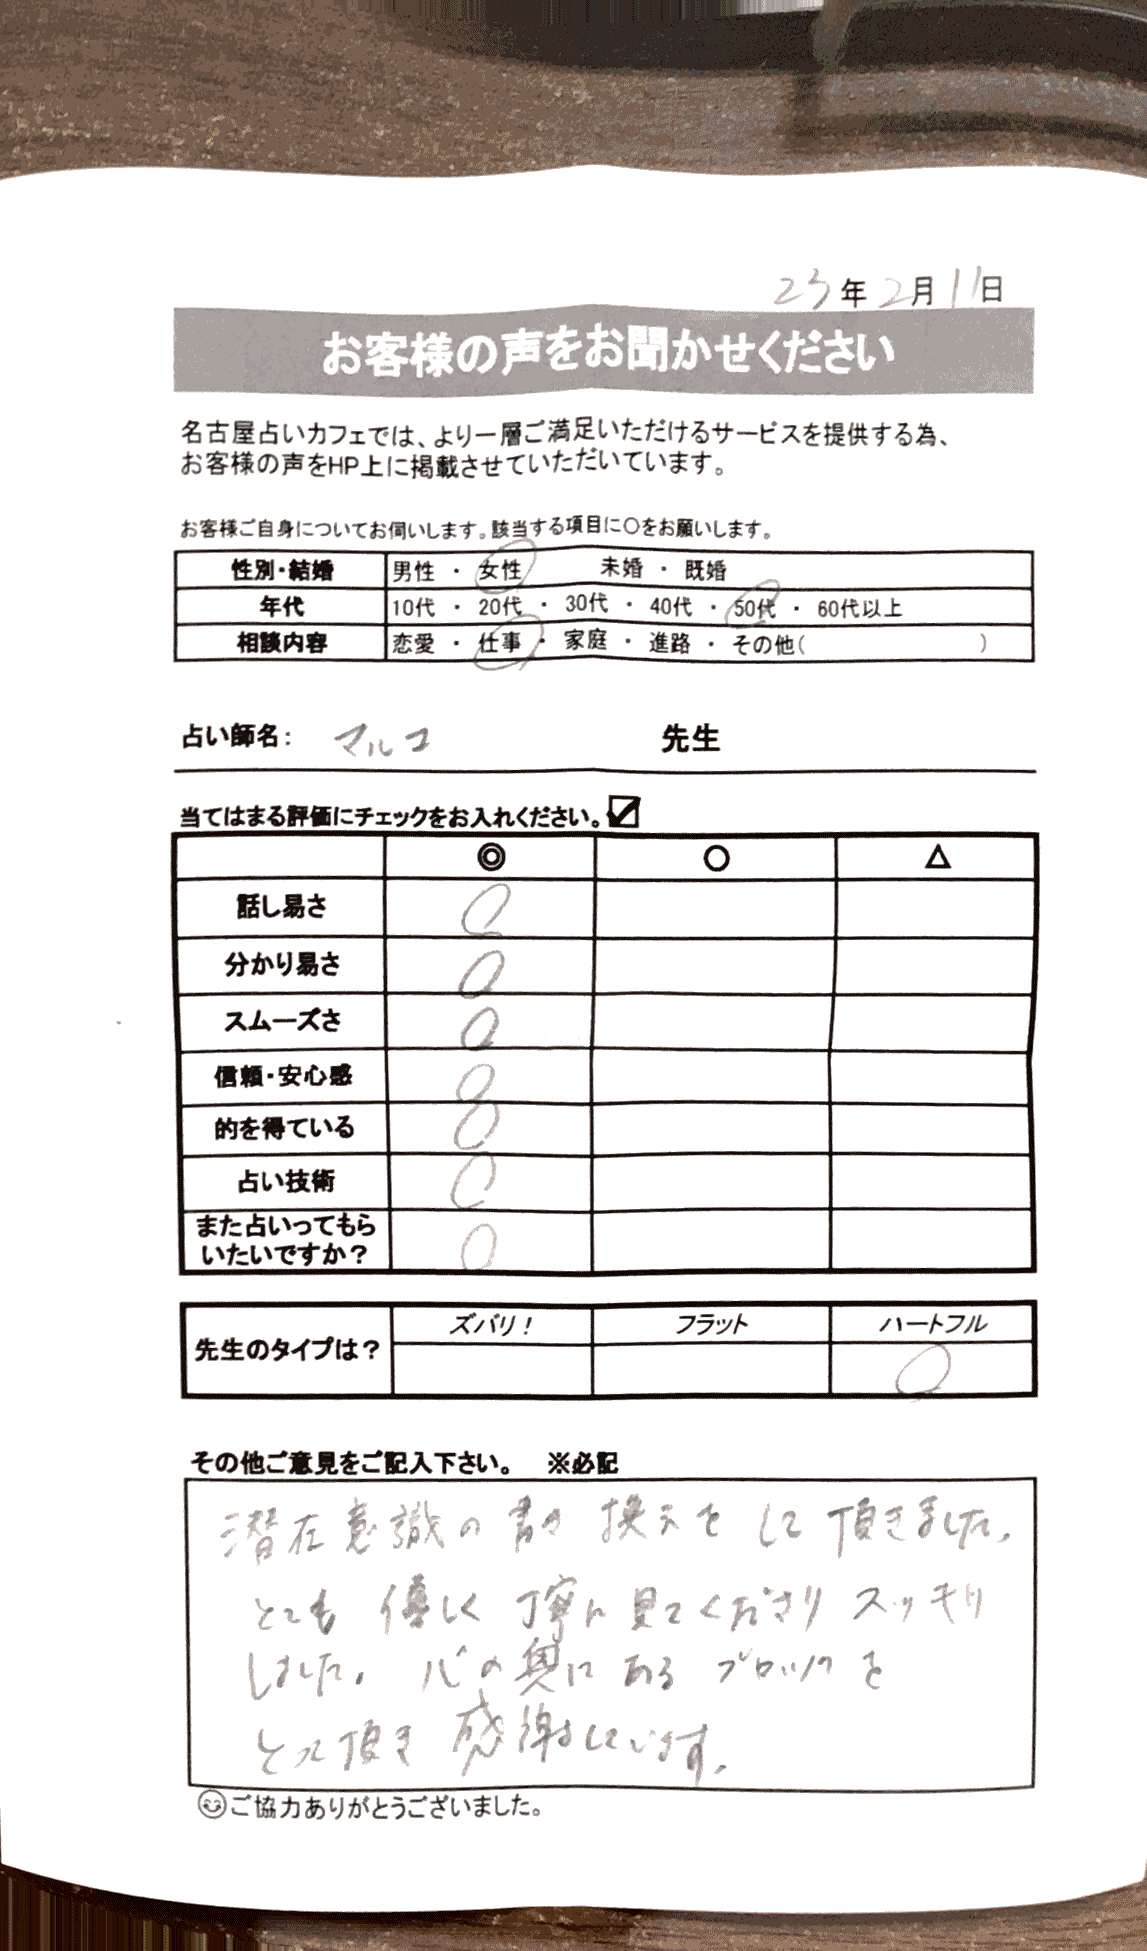 23年2月11日
お客様の声をお聞かせください
名古屋占いカフェでは、より一層ご満足いただけるサービスを提供する為、
お客様の声をHP上に掲載させていただいています。
お客様ご自身についてお伺いします。該当する項目に○をお願いします。
性別・結婚 男性 ・ 女性 未婚 ・ 既婚
年代 10代 ・ 20代 ・ 30代 ・ 40代 ・ 50代 ・ 60代以上
相談内容 恋愛 ・ 仕事 ・ 家庭 ・ 進路 ・ その他( )
占い師名: マルコ 先生
当てはまる評価にチェックをお入れください。☑
◎ ○ △
話し易さ ○
分かり易さ ○
スムーズさ ○
信頼・安心感 ○
的を得ている ○
占い技術 ○
また占いってもら
いたいですか? ○
ズバリ! フラット ハートフル
先生のタイプは? ○
その他ご意見をご記入下さい。 ※必記
潜在意識の書き換えをして頂きました。
とても優しく丁寧に見てくださりスッキリ
しました。心の奥にあるブロックを
とって頂き感謝しています。
ご協力ありがとうございました。